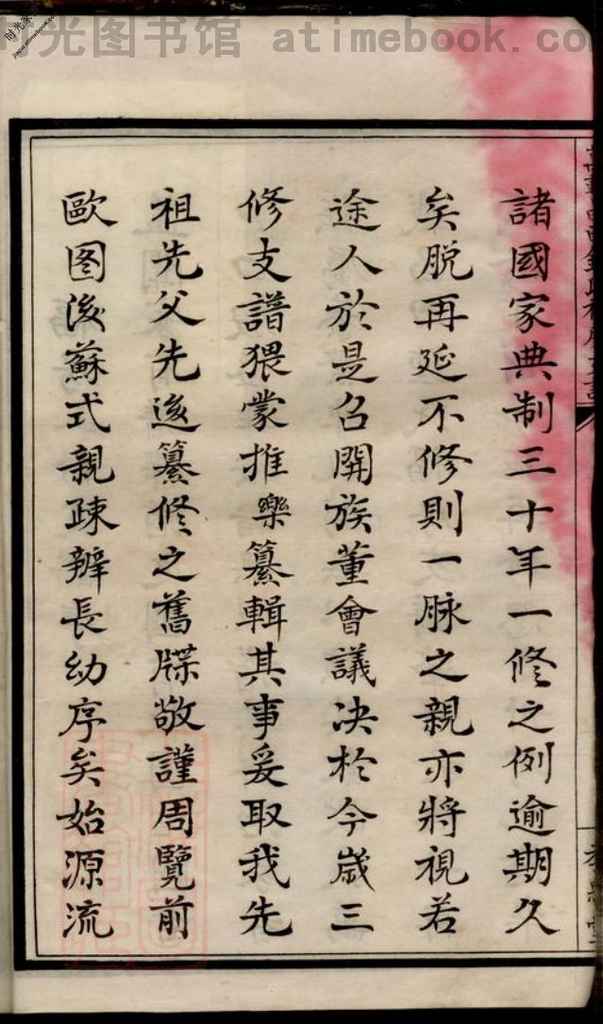 时光图书馆 atimebook.co
诸國家典制三十年一修之例逾期久
矣脱再延不修則一脉之親亦將視若
途人於是召開族董會議决於今歲三
修支譜猥蒙推樂纂輯其事爰取我先
祖先父先後纂修之舊牒敬謹周覽前
歐图後蘇式親疎辦長幼序矣始源流